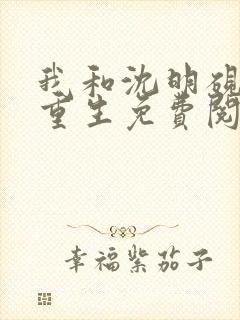 我和沈明砚
重生免费阅
幸福紫茄子